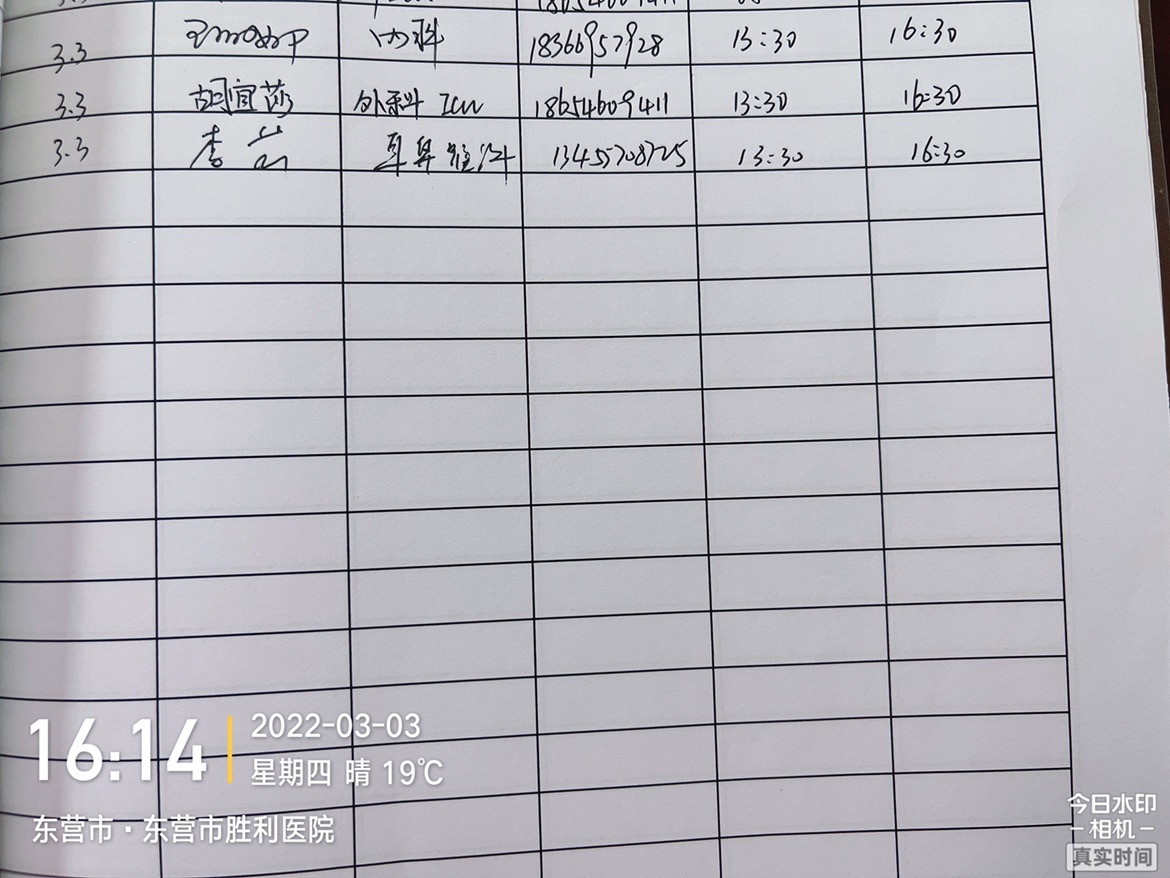 3.3 内科 18366957928 13:30 16:30
3.3 胡宜莎 外科ICU 18654609411 13:30 16:30
3.3 李 耳鼻喉 13455708725 13:30 16:30
16:14 2022-03-03
星期四 晴 19℃
东营市·东营市胜利医院
今日水印
-相机-
真实时间